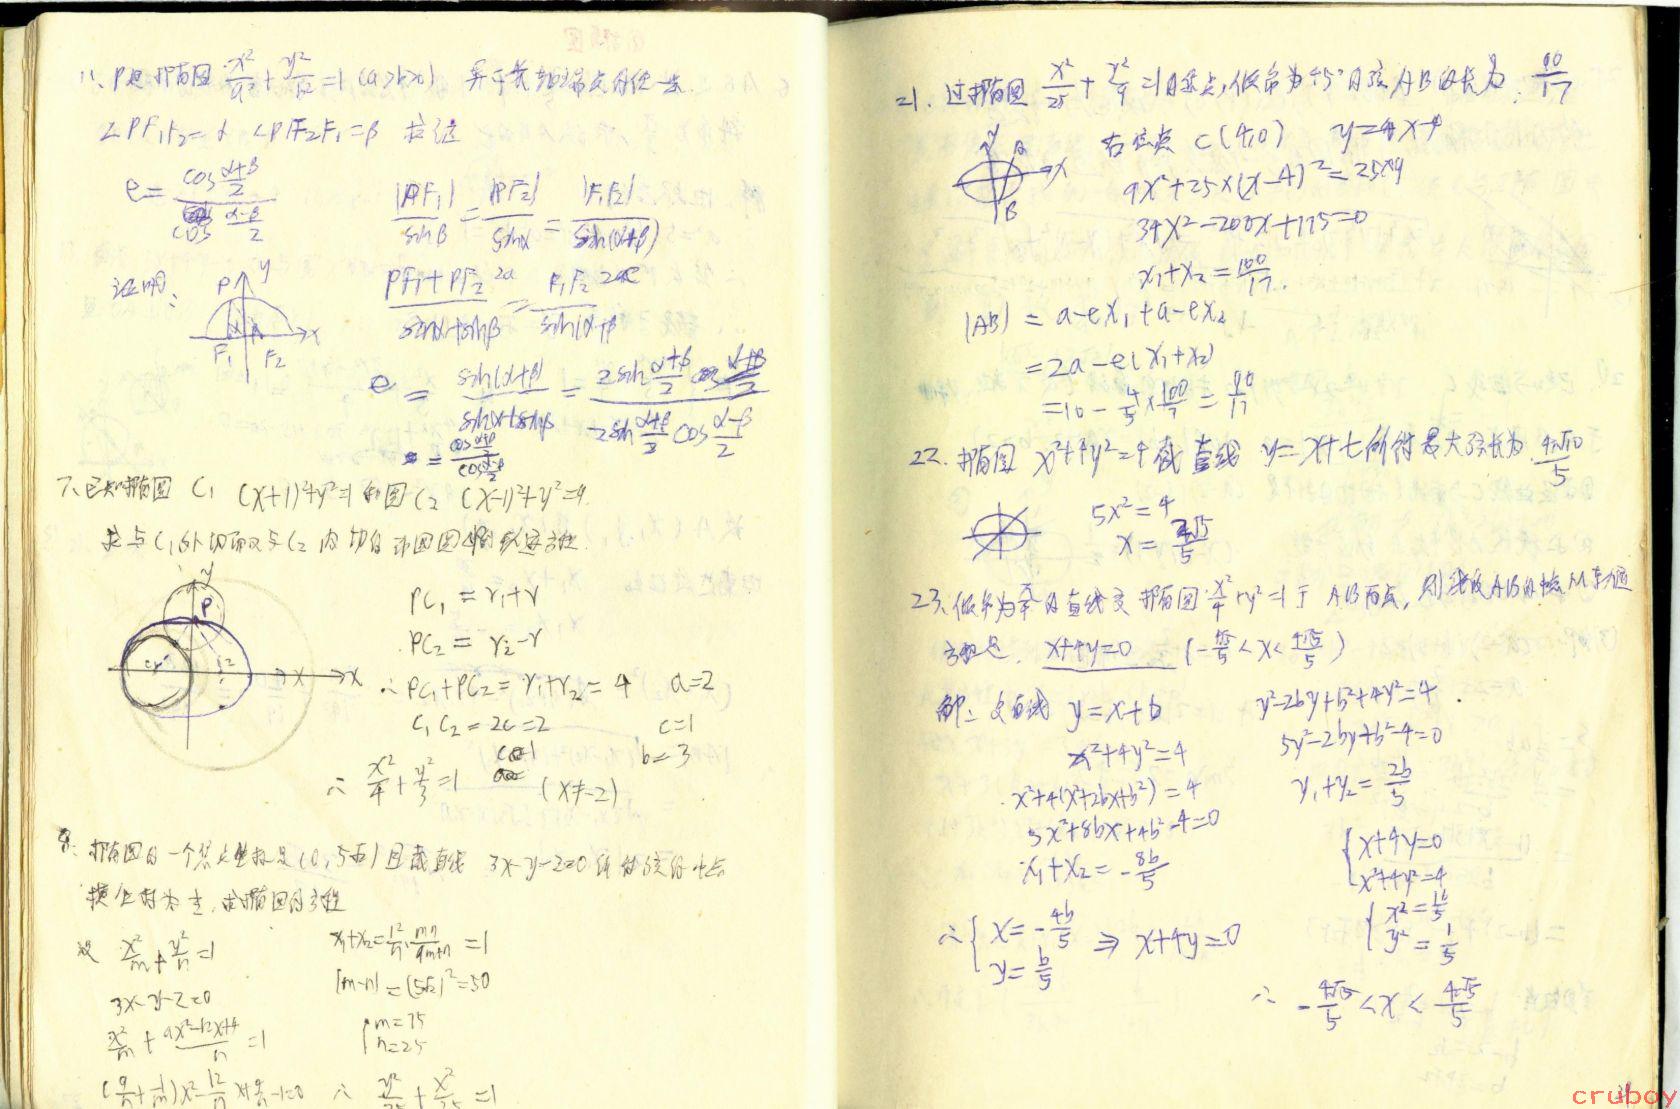 11、P是椭圆 x²/a² + y²/b² = 1 (a>b>0) 异于长轴端点的任一点.
∠PF₁F₂=α ∠PF₂F₁=β 求证
e = cos (α+β)/2 / cos (α-β)/2
|PF₁|/sinβ = |PF₂|/sinα = |F₁F₂|/sin(α+β)
证明:
P y x F₁ F₂
PF₁+PF₂ 2a / sinα+sinβ = F₁F₂ 2c / sin(α+β
e = sin(α+β) / sinα+sinβ = 2sin (α+β)/2 cos (α+β)/2 / 2sin (α+β)/2 cos (α-β)/2
= cos (α+β)/2 / cos (α-β)/2
7、已知椭圆 C₁ (x+1)²+y²=1 和圆C₂ (x-1)²+y²=9.
求与C₁外切而又与C₂内切的动圆圆心P的轨迹方程.
y P x x
PC₁ = r₁+r
PC₂ = r₂-r
∴ PC₁+PC₂ = r₁+r₂ = 4 a=2
C₁C₂ = 2c = 2 c=1
b=3
∴ x²/4 + y²/3 = 1 (x≠-2)
8、椭圆的一个焦点坐标是(0, 5√2) 且截直线 3x-y-2=0 所得的弦的中点
横坐标为 ½, 求椭圆的方程
设 x²/m + y²/n = 1
3x-y-2=0
x²/m + 9x²-12x+4 / n = 1
(9/n + 1/m)x² - 12/n x + 4/n - 1=0
x₁+x₂ = 12/n · mn/9m+n = 1
|m-n| = (5√2)² = 50
{ m=75
n=25
∴ y²/75 + x²/25 = 1
21、过椭圆 x²/25 + y²/9 = 1的焦点, 倾角为45°的弦AB的长为: 90/17
y A x B
右焦点 C(4,0) y=4x-4
9x²+25×(x-4)²=25×9
34x²-200x+175=0
x₁+x₂ = 100/17.
|AB| = a-ex₁+a-ex₂
= 2a-e(x₁+x₂)
= 10 - 4/5 × 100/17 = 90/17
22、椭圆 x²+4y²=4 截直线 y=x+t所得最大弦长为. 4√10/5
5x²=4
x = 2√5/5
23、倾角为 π/4 的直线交椭圆 x²/4 + y²=1于 AB两点, 则线段AB的中点M轨迹
方程是. x+4y=0 (-4√5/5 < x < 4√5/5)
解: 交直线 y=x+b
x²+4y²=4
x²+4(x²+2bx+b²)=4
5x²+8bx+4b²-4=0
x₁+x₂ = -8b/5
y²-2by+b²+4y²=4
5y²-2by+b²-4=0
y₁+y₂ = 2b/5
∴ { x = -4b/5
y = b/5
⇒ x+4y=0
{ x+4y=0
x²+4y²=4
{ x² = 16/5
y² = 1/5
∴ -4√5/5 < x < 4√5/5
cruboy